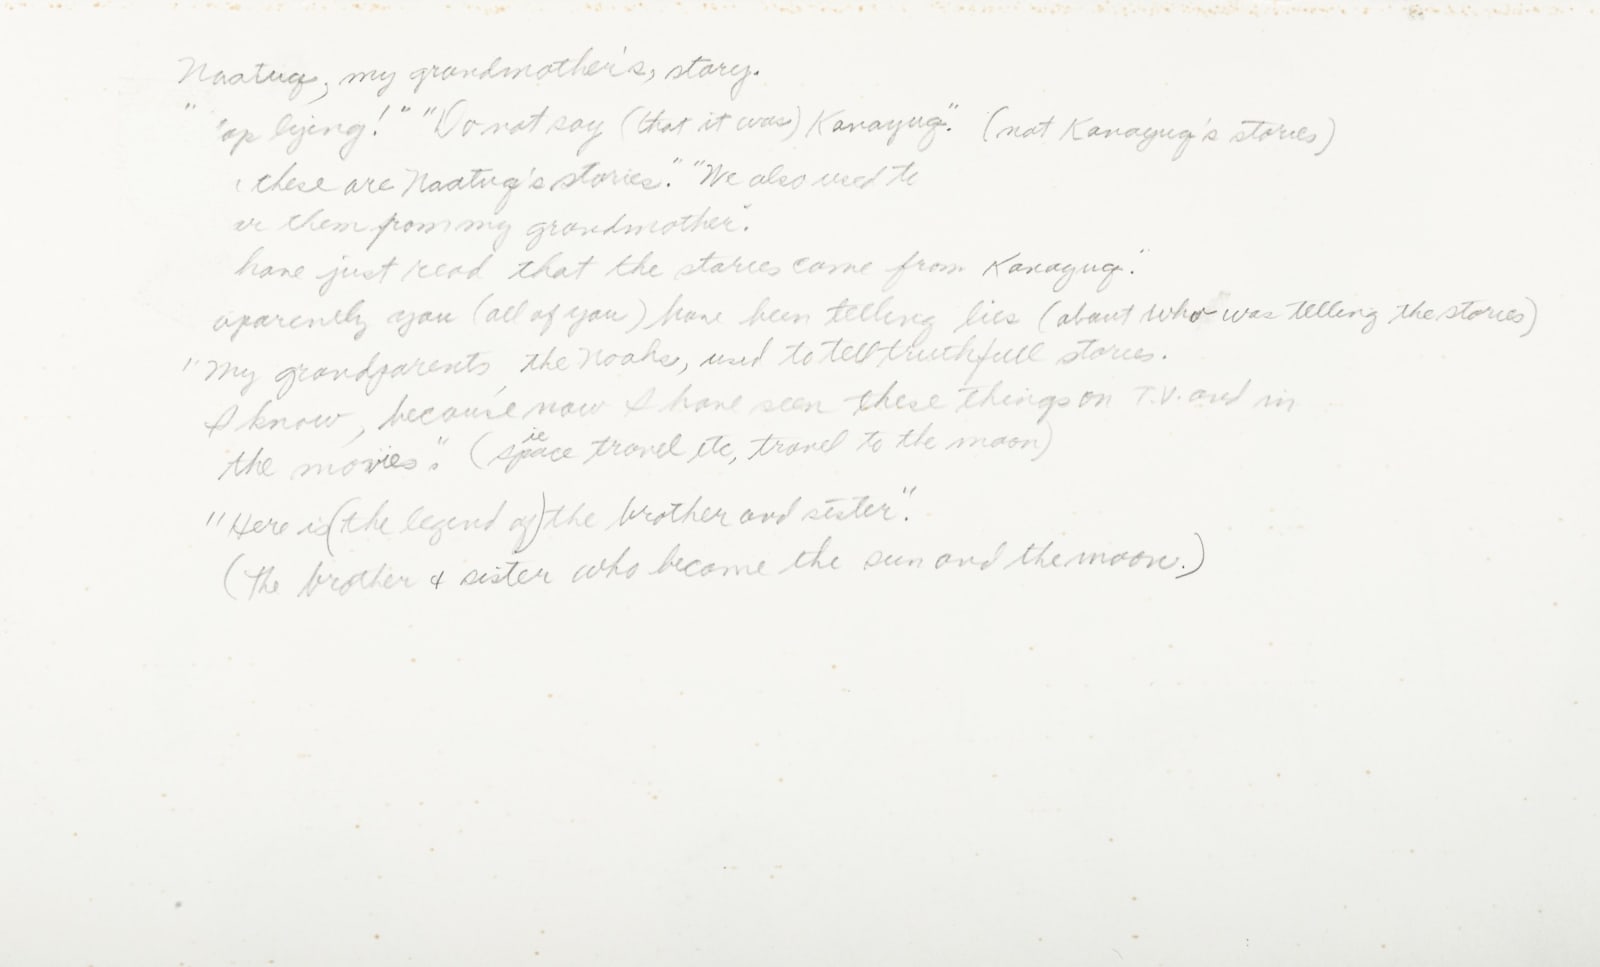 Naatuq, my grandmother's, story.
" 'op lying!" "Do not say (that it was) Kanayuq." (not Kanayuq's stories)
these are Naatuq's stories." "We also used to
ar them from my grandmother".
have just read that the stories come from Kanayuq".
aparently you (all of you) have been telling lies (about who was telling the stories)
"My grandparents, the Noahs, used to tell truthfull stories.
I know, because now I have seen these things on T.V. and in
the movies". (ie space travel etc, travel to the moon)
"Here is (the legend of) the brother and sister".
(The brother & sister who became the sun and the moon.)